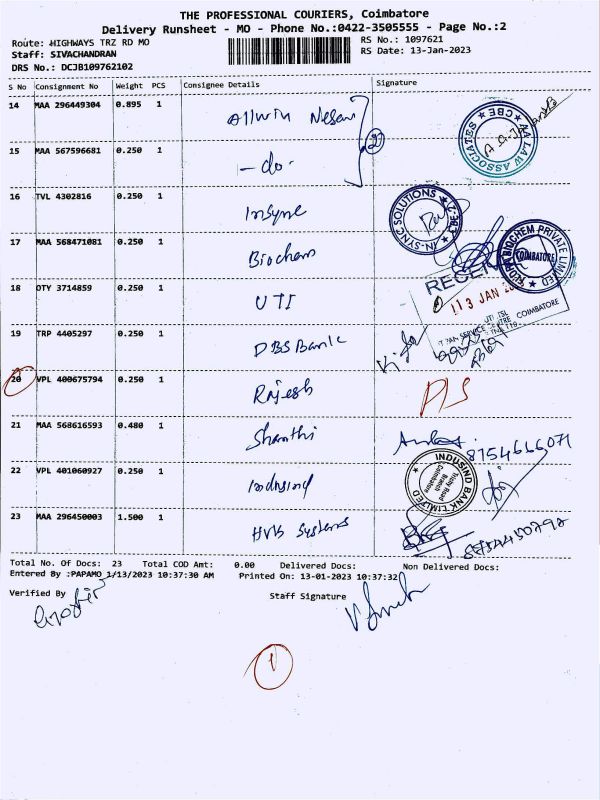 THE PROFESSIONAL COURIERS, Coimbatore
Delivery Runsheet - MO - Phone No.:0422-3505555 - Page No.:2
Route: HIGHWAYS TRZ RD MO
RS No.: 1097621
Staff: SIVACHANDRAN
RS Date: 13-Jan-2023
DRS No.: DCJB109762102
S No Consignment No Weight PCS Consignee Details Signature
14 MAA 296449304 0.895 1 Allwin Nesan
AA LAW ASSOCIATES ★ CBE ★
15 MAA 567596681 0.250 1 - do -
16 TVL 4302816 0.250 1 Insync
IN-SYNC SOLUTIONS
17 MAA 568471081 0.250 1 Biochem
BIOCHEM PRIVATE LIMITED ★ COIMBATORE
18 OTY 3714859 0.250 1 UTI
13 JAN
COIMBATORE
19 TRP 4405297 0.250 1 DBS Bank
20 VPL 400675794 0.250 1 Rajesh
21 MAA 568616593 0.480 1 Shanthi 8754666071
22 VPL 401060927 0.250 1 Indusind
INDUSIND BANK LIMITED ★ Trichy Road Branch Coimbatore
23 MAA 296450003 1.500 1 HVB Systems
Total No. Of Docs: 23 Total COD Amt: 0.00 Delivered Docs: Non Delivered Docs:
Entered By :PAPAMO 1/13/2023 10:37:30 AM Printed On: 13-01-2023 10:37:32
Verified By
Staff Signature
1